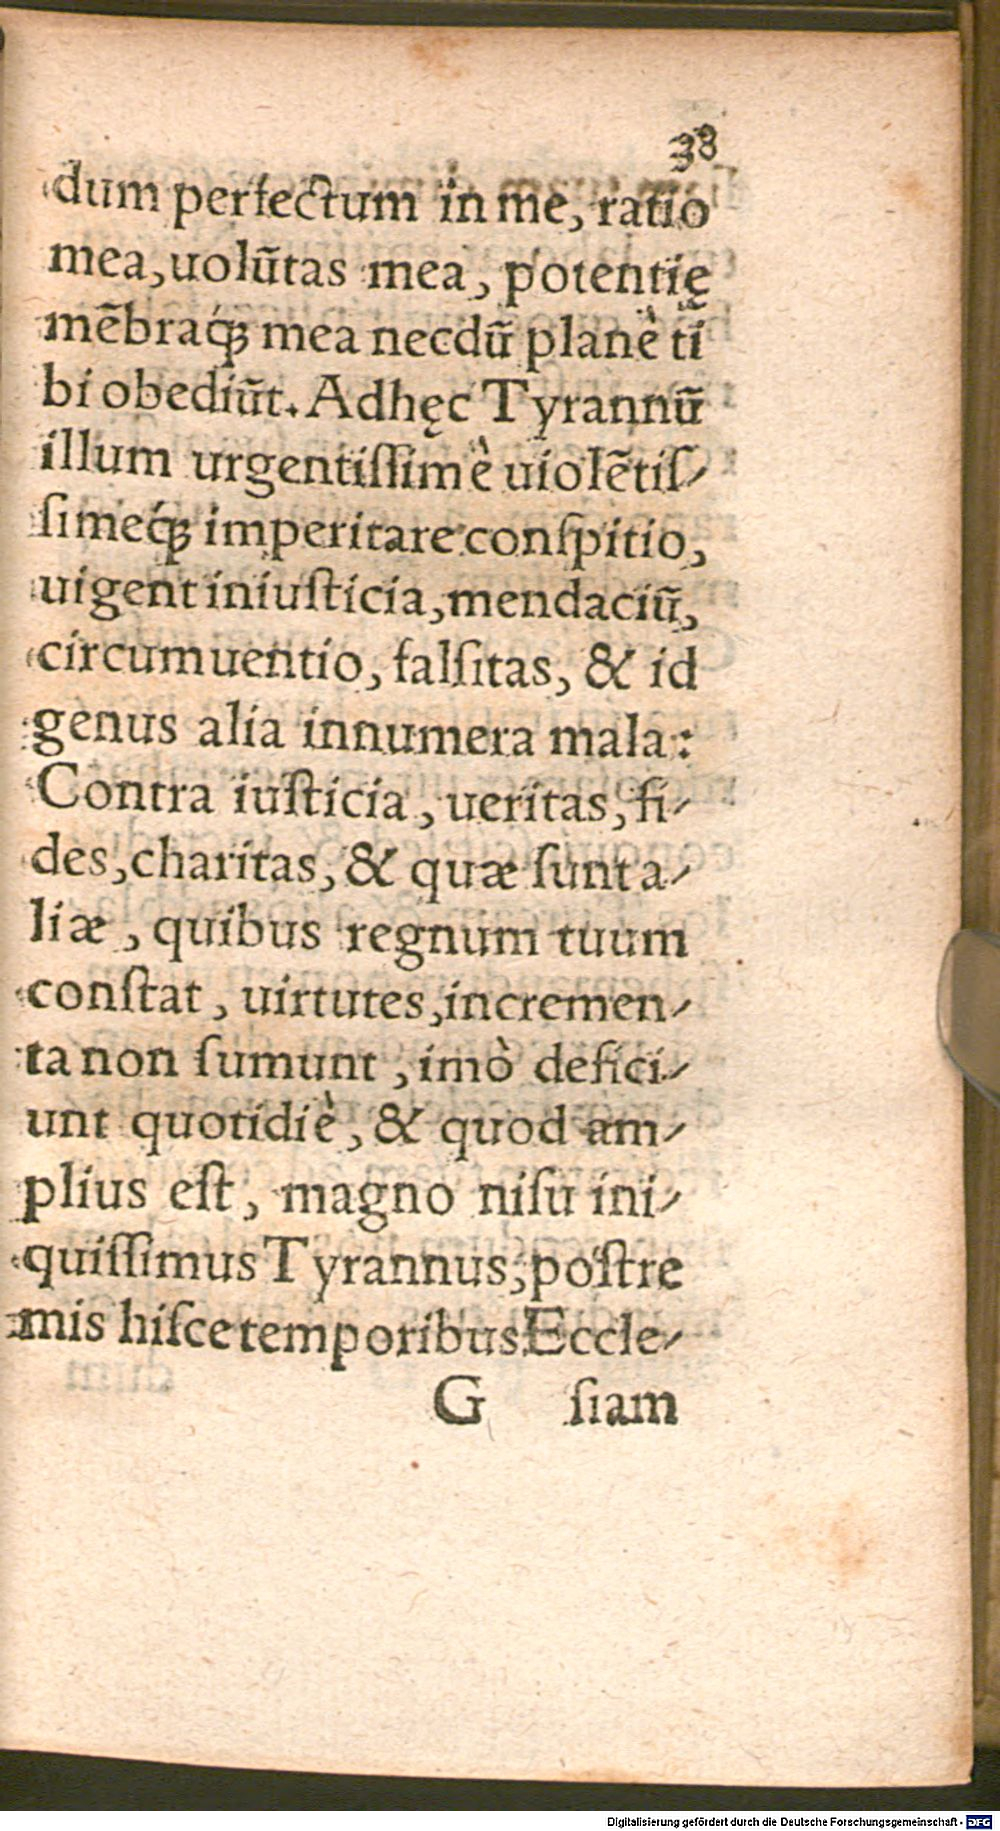 38
dum perfectum in me, ratio
mea, uolũtas mea, potentię
mẽbraq́ꝫ mea necdũ planè ti
bi obediũt. Adhęc Tyrannũ
illum urgentiſſimè uiolẽtiſ⸗
ſimeq́ꝫ imperitare conſpitio,
uigent iniuſticia, mendaciũ,
circumuentio, falſitas, & id
genus alia innumera mala:
Contra iuſticia, ueritas, fi⸗
des, charitas, & quæ ſunt a⸗
liæ, quibus regnum tuum
conſtat, uirtutes, incremen⸗
ta non ſumunt, imò defici⸗
unt quotidiè, & quod am⸗
plius eſt, magno niſu ini⸗
quiſſimus Tyrannus, poſtre
mis hiſce temporibus Eccle⸗
G ſiam
Digitalisierung gefördert durch die Deutsche Forschungsgemeinschaft - DFG